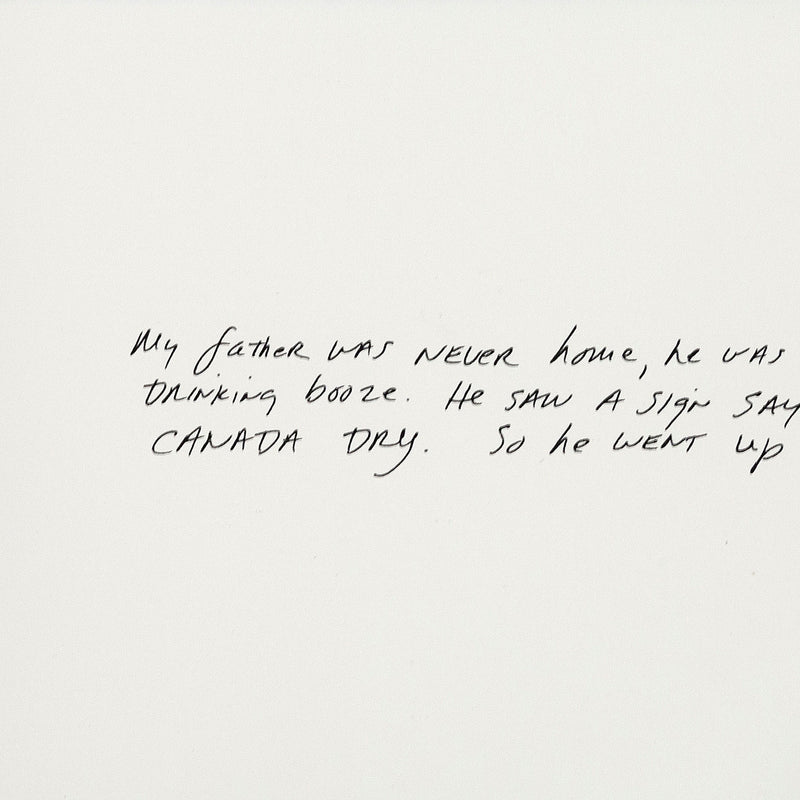 My father was never home, he was
drinking booze. He saw a sign say
Canada Dry. So he went up